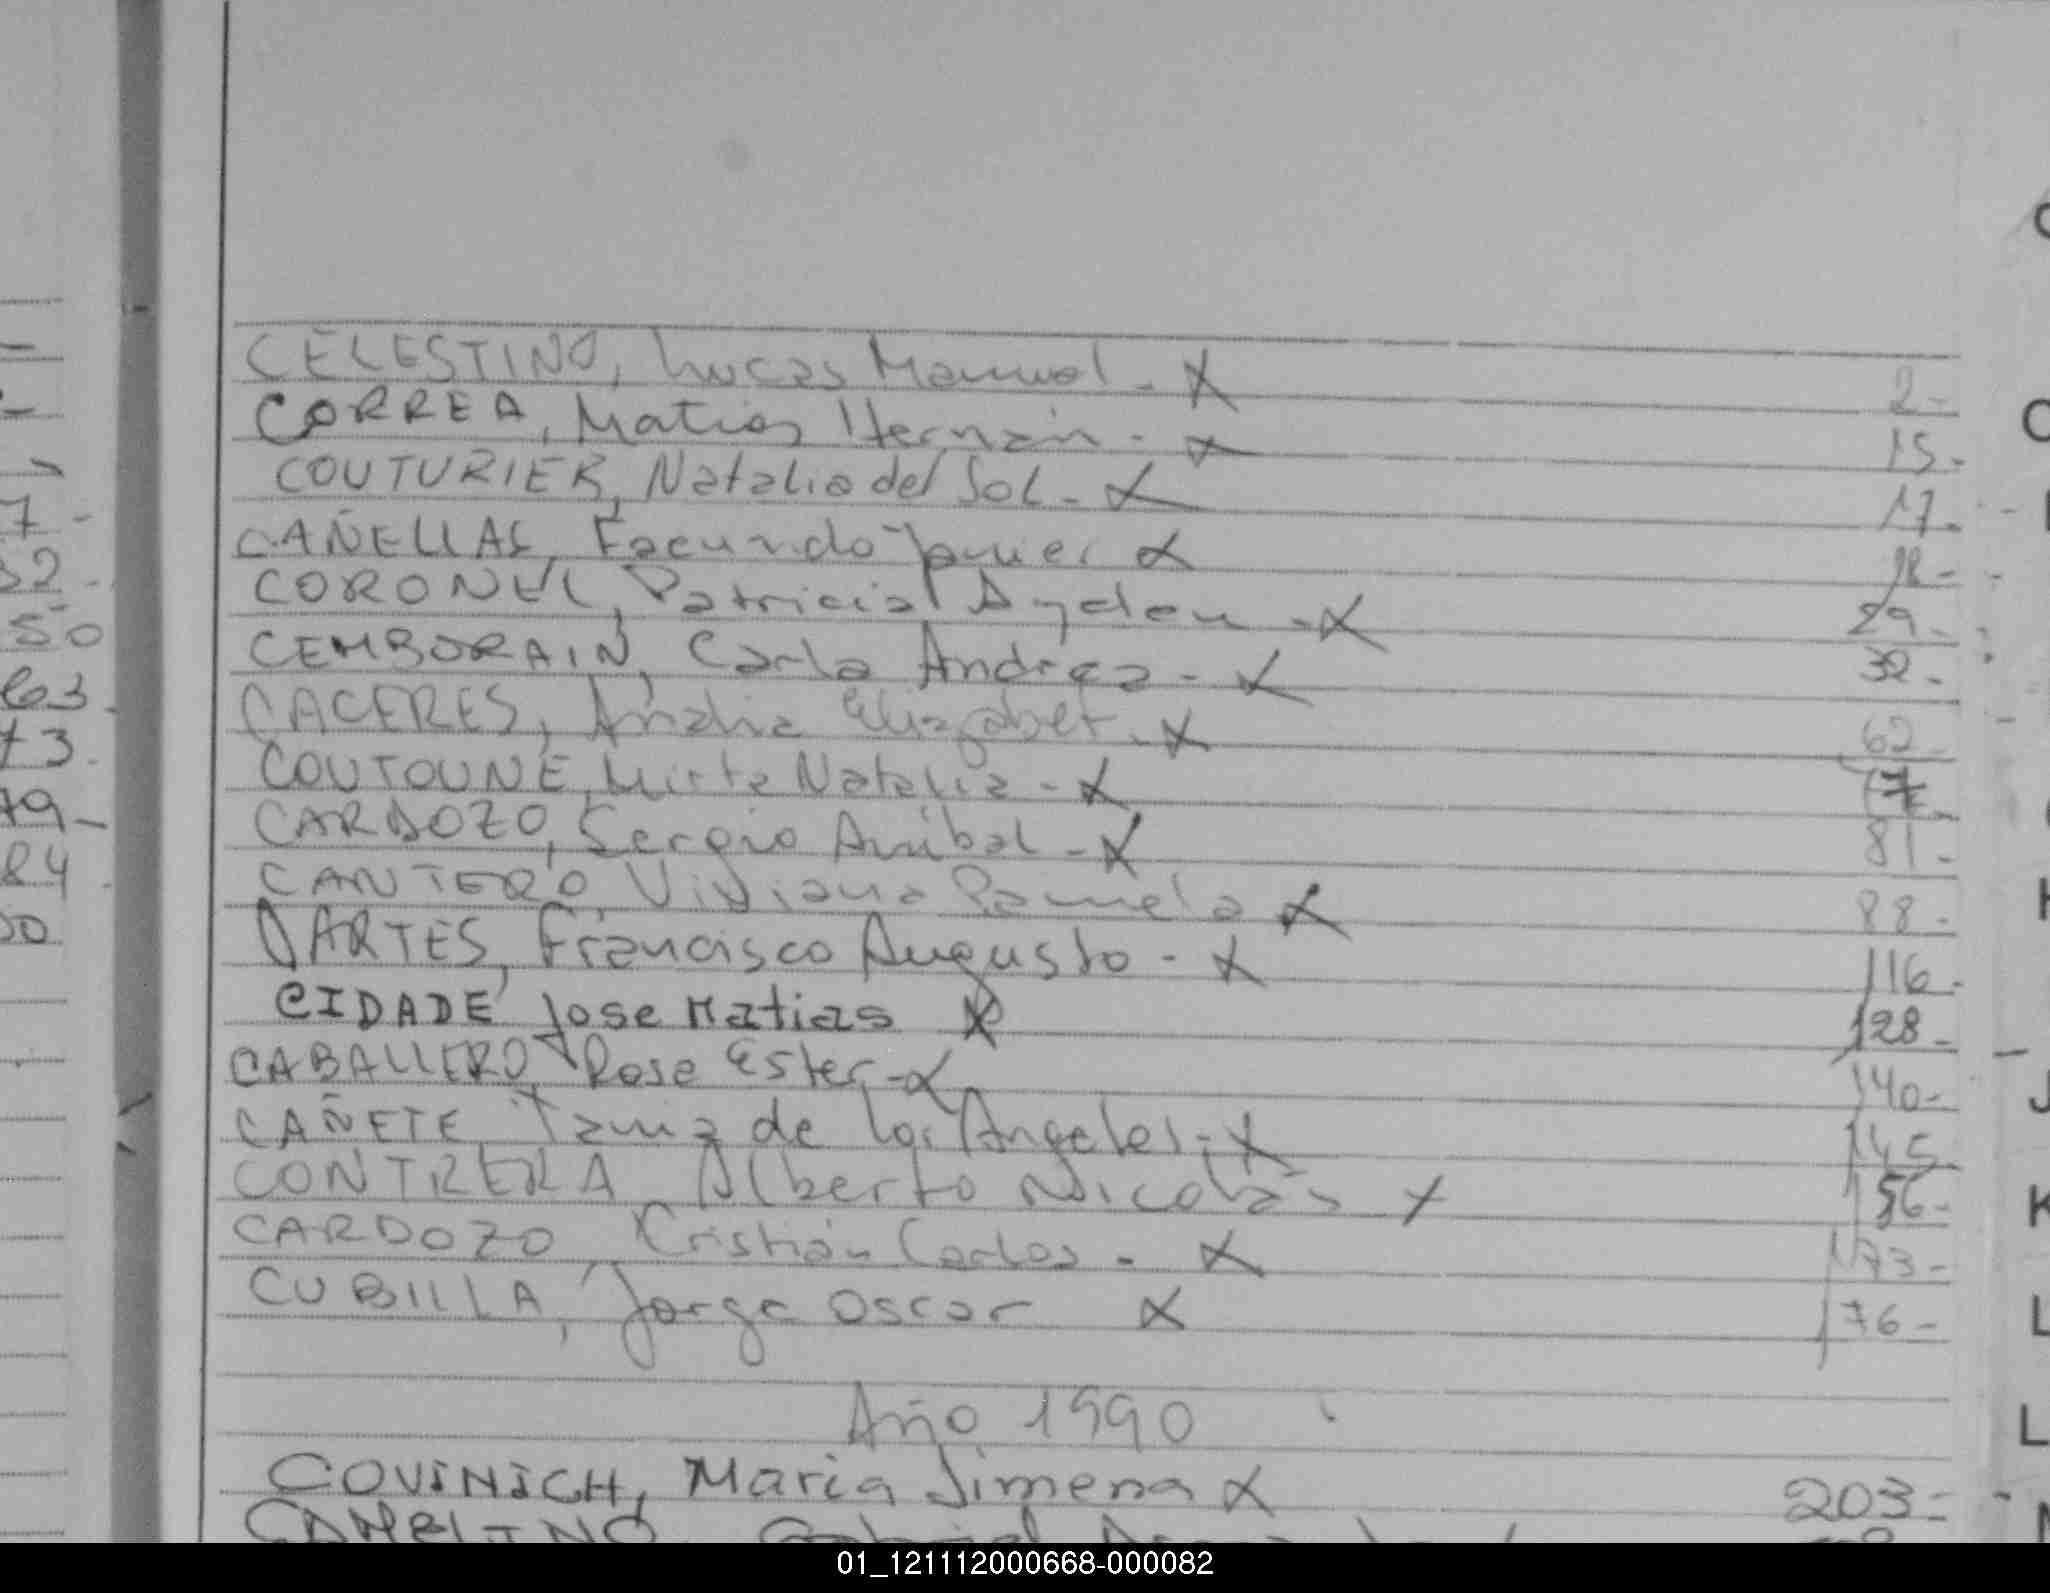 CELESTINO, Lucas Manuel - X 2-
CORREA, Matias Hernán - X 15-
COUTURIER, Natalia del Sol - X 17-
CAÑELLAS, Facundo Javier X 18-
CORONEL, Patricia Aydeu - X 29-
CEMBORAIN, Carla Andrea - X 32-
CACERES, Analia Elizabet - X 62-
COUTOUNE, Mirta Natalia - X 77-
CARDOZO, Sergio Anibal - X 81-
CANTERO, Viviana Pamela X 88-
DARTES, Francisco Augusto - X 116-
CIDADE Jose Matias X 128-
CABALLERO, Rosa Ester - X 140-
CAÑETE, Tania de los Angeles - X 145-
CONTRERA, Alberto Nicolás X 156-
CARDOZO, Cristián Carlos - X 173-
CUBILLA, Jorge Oscar X 176-
Año 1990
COVINICH, Maria Jimena X 203-
01_121112000668-000082